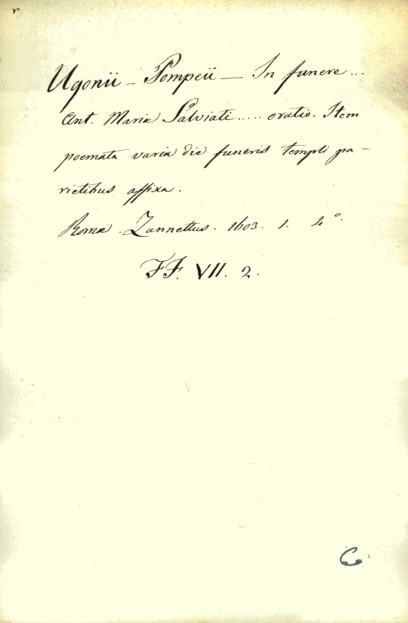 Ugonii – Pompeii – In funere ...
Ant. Mariæ Salviati ..... oratio. Item
poemata varia die funeris templi pa-
rietibus affixa.
Romæ. Zannettus. 1603. 1. 4°.
FF. VII. 2.